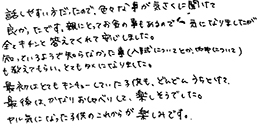 話しやすい方だったので、色々な事が気さくに聞けて
良かったです。親にとってお金の事もあるので気になりましたが
全てキチンと答えてくれて安心しました。
知っているようで知らなかった事(入試についてとか、地域について)
も教えてもらい、とてもタメになりました。
最初はとてもキンチョーしていた子供も、どんどんうちとけて、
最後は、かなりおしゃべりして、楽しそうでした。
ヤル気になった子供のこれからが楽しみです。